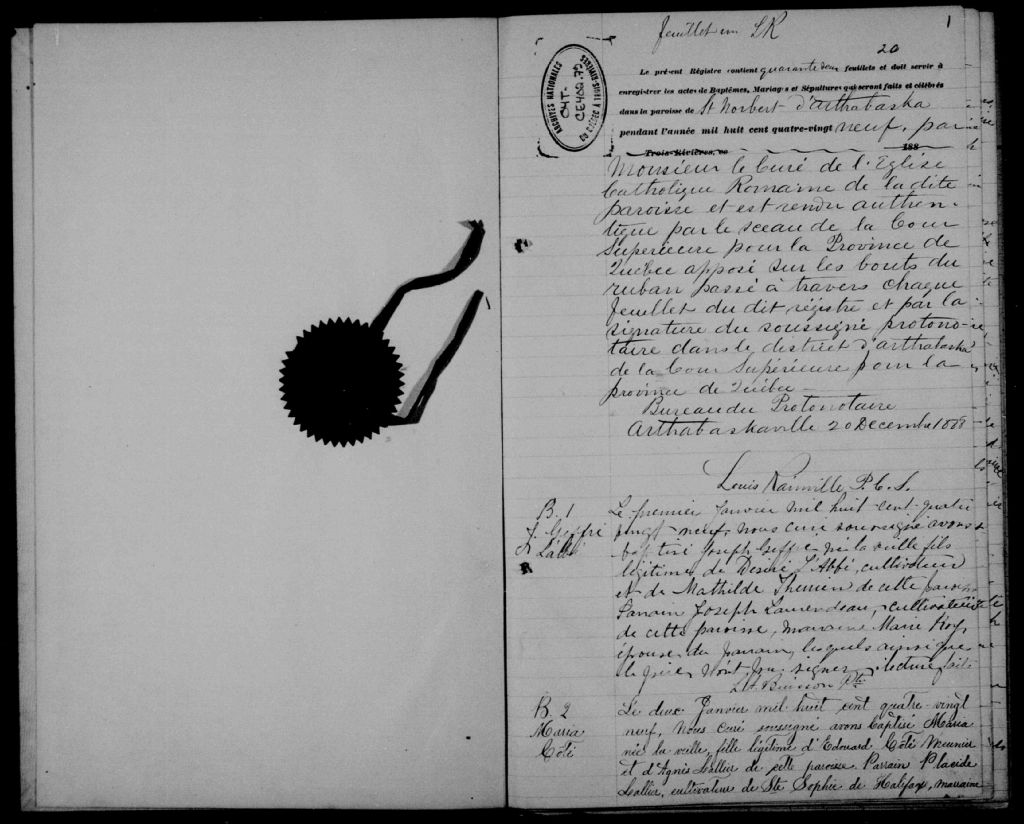 feuillet un LR
1
20
Le présent Régistre contient quarante deux feuillets et doit servir à
enregistrer les actes de Baptêmes, Mariages et Sépultures qui seront faits et célébrés
dans la paroisse de St Norbert d'Arthabaska
pendant l'année mil huit cent quatre-vingt neuf, par
Trois-Rivières, ce 188
Monsieur le Curé de l'Eglise
Catholique Romaine de la dite
paroisse et est rendu authen-
tique par le sceau de la Cour
Superieure pour la Province de
Québec apposé sur les bouts du
ruban passé à travers chaque
feuillet du dit régistre et par la
signature du soussigné protono-
taire dans le district d'Arthabaska
de la Cour Supérieure pour la
province de Québec
Bureau du Protonotaire
Arthabaskaville 20 Decembre 1888
Louis Rainville P.C.S.
ARCHIVES NATIONALES
DU QUEBEC A TROIS-RIVIERES
04T-
CE402.79
B. 1
J. Geffré
L'abbé
Le premier Janvier mil huit-cent-quatre
vingt-neuf, nous curé soussigné avons
baptisé Joseph Geffré né la veille fils
légitime de Desiré L'Abbé, cultivateur
et de Mathilde Therrien de cette paroisse
Parrain Joseph Laurendeau, cultivateur
de cette paroisse, marraine Marie Roy,
épouse du parrain, lesquels ainsi que
le père n'ont pu signer, lecture faite
Buisson Ptre
B. 2
Maria
Coté
Le deux Janvier mil huit cent quatre-vingt
neuf, Nous curé soussigné avons baptisé Maria
née la veille, fille légitime d'Edouard Coté Meunier
et d'Agnès Vallier de cette paroisse Parrain Placide
Vallier, cultivateur de Ste Sophie de Halifax, marraine